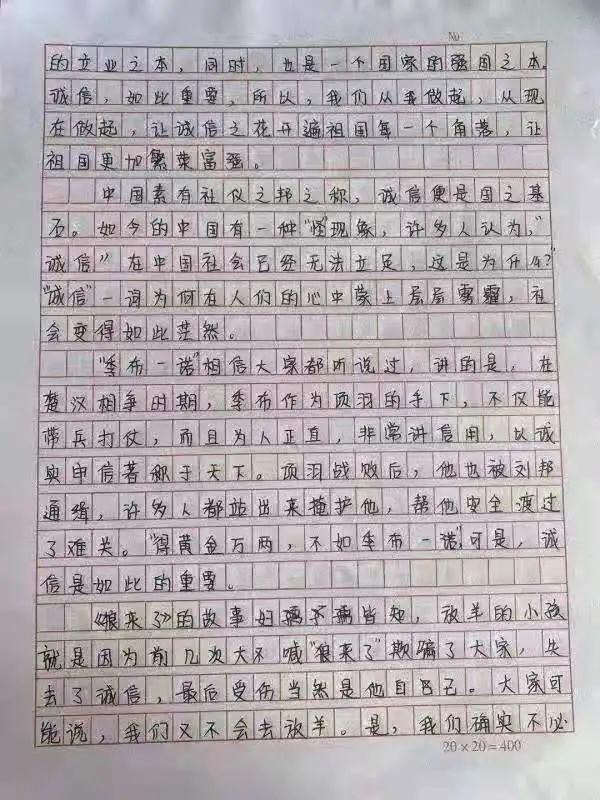 No
的立业之本，同时，也是一个国家的强国之本。
诚信，如此重要，所以，我们从我做起，从现
在做起，让诚信之花开遍祖国每一个角落，让
祖国更加繁荣富强。
中国素有社仪之邦之称，诚信便是国之基
石。如今的中国有一种“怪”现象，许多人认为，“
诚信”在中国社会已经无法立足，这是为什么？
“诚信”一词为何在人们的心中蒙上层层雾霾，社
会变得如此茫然。
“季布一诺”相信大家都听说过，讲的是，在
楚汉相争时期，季布作为项羽的手下，不仅能
带兵打仗，而且为人正直，非常讲信用，以诚
实申信著称于天下。项羽战败后，他也被刘邦
通缉，许多人都站出来掩护他，帮他安全渡过
了难关。“得黄金万两，不如季布一诺”，可是，诚
信是如此的重要。
《狼来了》的故事妇孺不孺皆知，放羊的小孩
就是因为前几次大不喊“狼来了”欺骗了大家，失
去了诚信，最后受伤当然是他自己己。大家可
能说，我们又不会去放羊。是，我们确实不必
20×20=400